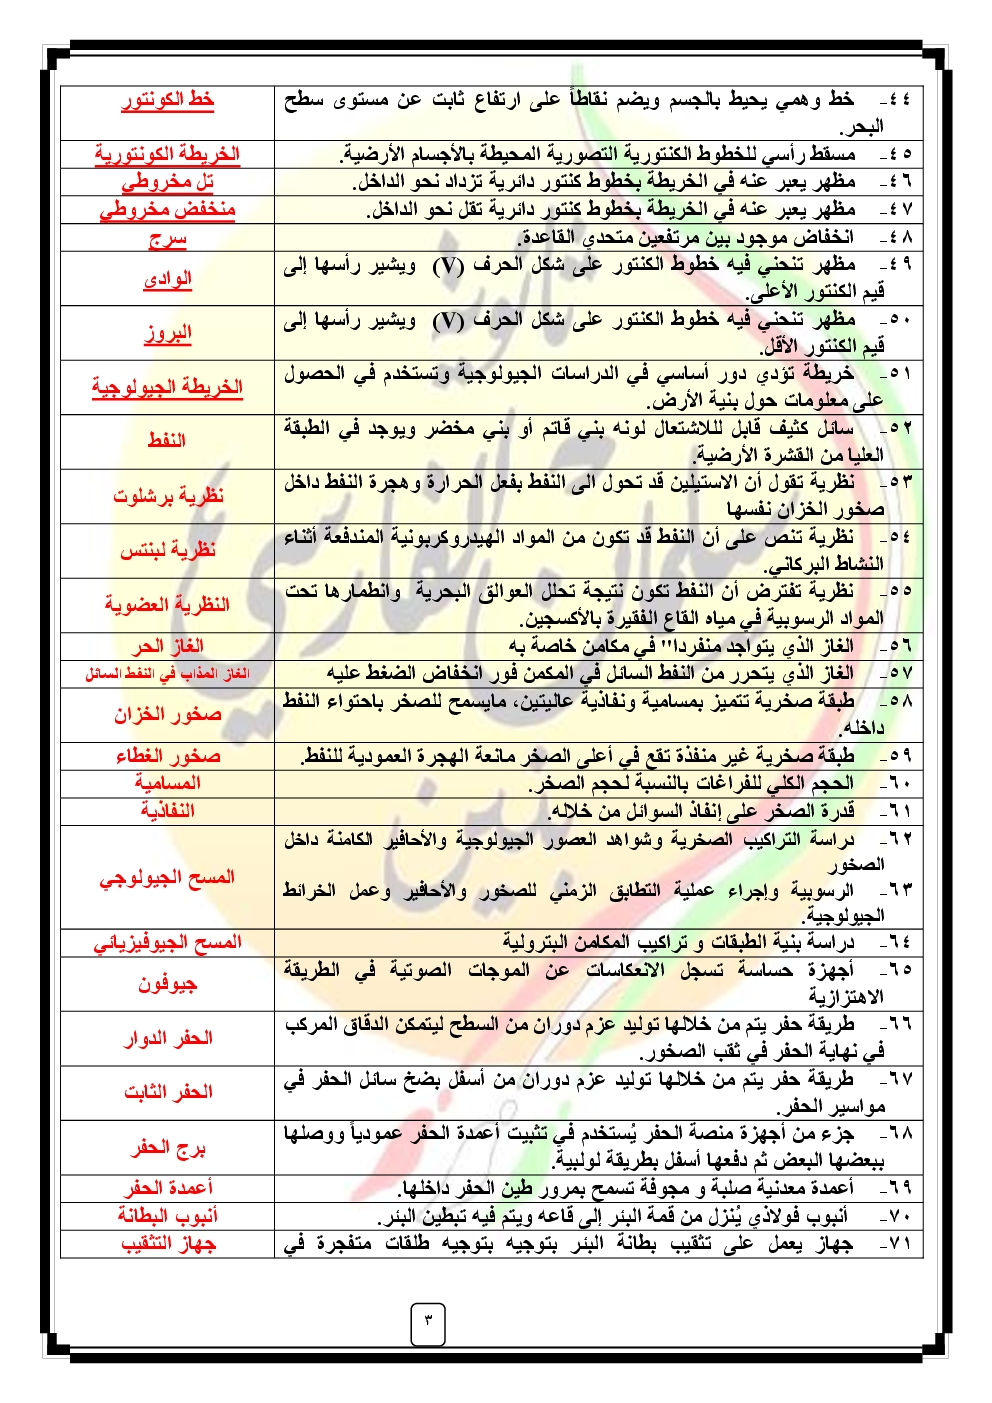 ٤٤- خط وهمي يحيط بالجسم ويضم نقاطاً على ارتفاع ثابت عن مستوى سطح
البحر.
خط الكونتور
٤٥- مسقط رأسي للخطوط الكنتورية التصورية المحيطة بالأجسام الأرضية.
الخريطة الكونتورية
٤٦- مظهر يعبر عنه في الخريطة بخطوط كنتور دائرية تزداد نحو الداخل.
تل مخروطي
٤٧- مظهر يعبر عنه في الخريطة بخطوط كنتور دائرية تقل نحو الداخل.
منخفض مخروطي
٤٨- انخفاض موجود بين مرتفعين متحدي القاعدة.
سرج
٤٩- مظهر تنحني فيه خطوط الكنتور على شكل الحرف (V) ويشير رأسها إلى
قيم الكنتور الأعلى.
الوادى
٥٠- مظهر تنحني فيه خطوط الكنتور على شكل الحرف (V) ويشير رأسها إلى
قيم الكنتور الأقل.
البروز
٥١- خريطة تؤدي دور أساسي في الدراسات الجيولوجية وتستخدم في الحصول
على معلومات حول بنية الأرض.
الخريطة الجيولوجية
٥٢- سائل كثيف قابل لللاشتعال لونه بني قاتم أو بني مخضر ويوجد في الطبقة
العليا من القشرة الأرضية.
النفط
٥٣- نظرية تقول أن الاستيلين قد تحول الى النفط بفعل الحرارة وهجرة النفط داخل
صخور الخزان نفسها
نظرية برشلوت
٥٤- نظرية تنص على أن النفط قد تكون من المواد الهيدروكربونية المندفعة أثناء
النشاط البركاني.
نظرية لبنتس
٥٥- نظرية تفترض أن النفط تكون نتيجة تحلل العوالق البحرية وانطمارها تحت
المواد الرسوبية في مياه القاع الفقيرة بالأكسجين.
النظرية العضوية
٥٦- الغاز الذي يتواجد منفردا" في مكامن خاصة به
الغاز الحر
٥٧- الغاز الذي يتحرر من النفط السائل في المكمن فور انخفاض الضغط عليه
الغاز المذاب في النفط السائل
٥٨- طبقة صخرية تتميز بمسامية ونفاذية عاليتين، مايسمح للصخر باحتواء النفط
داخله.
صخور الخزان
٥٩- طبقة صخرية غير منفذة تقع في أعلى الصخر مانعة الهجرة العمودية للنفط.
صخور الغطاء
٦٠- الحجم الكلي للفراغات بالنسبة لحجم الصخر.
المسامية
٦١- قدرة الصخر على إنفاذ السوائل من خلاله.
النفاذية
٦٢- دراسة التراكيب الصخرية وشواهد العصور الجيولوجية والأحافير الكامنة داخل
الصخور
٦٣- الرسوبية وإجراء عملية التطابق الزمني للصخور والأحافير وعمل الخرائط
الجيولوجية.
المسح الجيولوجي
٦٤- دراسة بنية الطبقات و تراكيب المكامن البترولية
المسح الجيوفيزيائي
٦٥- أجهزة حساسة تسجل الانعكاسات عن الموجات الصوتية في الطريقة
الاهتزازية
جيوفون
٦٦- طريقة حفر يتم من خلالها توليد عزم دوران من السطح ليتمكن الدقاق المركب
في نهاية الحفر في ثقب الصخور.
الحفر الدوار
٦٧- طريقة حفر يتم من خلالها توليد عزم دوران من أسفل بضخ سائل الحفر في
مواسير الحفر.
الحفر الثابت
٦٨- جزء من أجهزة منصة الحفر يُستخدم في تثبيت أعمدة الحفر عمودياً ووصلها
ببعضها البعض ثم دفعها أسفل بطريقة لولبية.
برج الحفر
٦٩- أعمدة معدنية صلبة و مجوفة تسمح بمرور طين الحفر داخلها.
أعمدة الحفر
٧٠- أنبوب فولاذي يُنزل من قمة البئر إلى قاعه ويتم فيه تبطين البئر.
أنبوب البطانة
٧١- جهاز يعمل على تثقيب بطانة البئر بتوجيه بتوجيه طلقات متفجرة في
جهاز التثقيب
ثانوية
سلمان الفارسي
بنين
٣